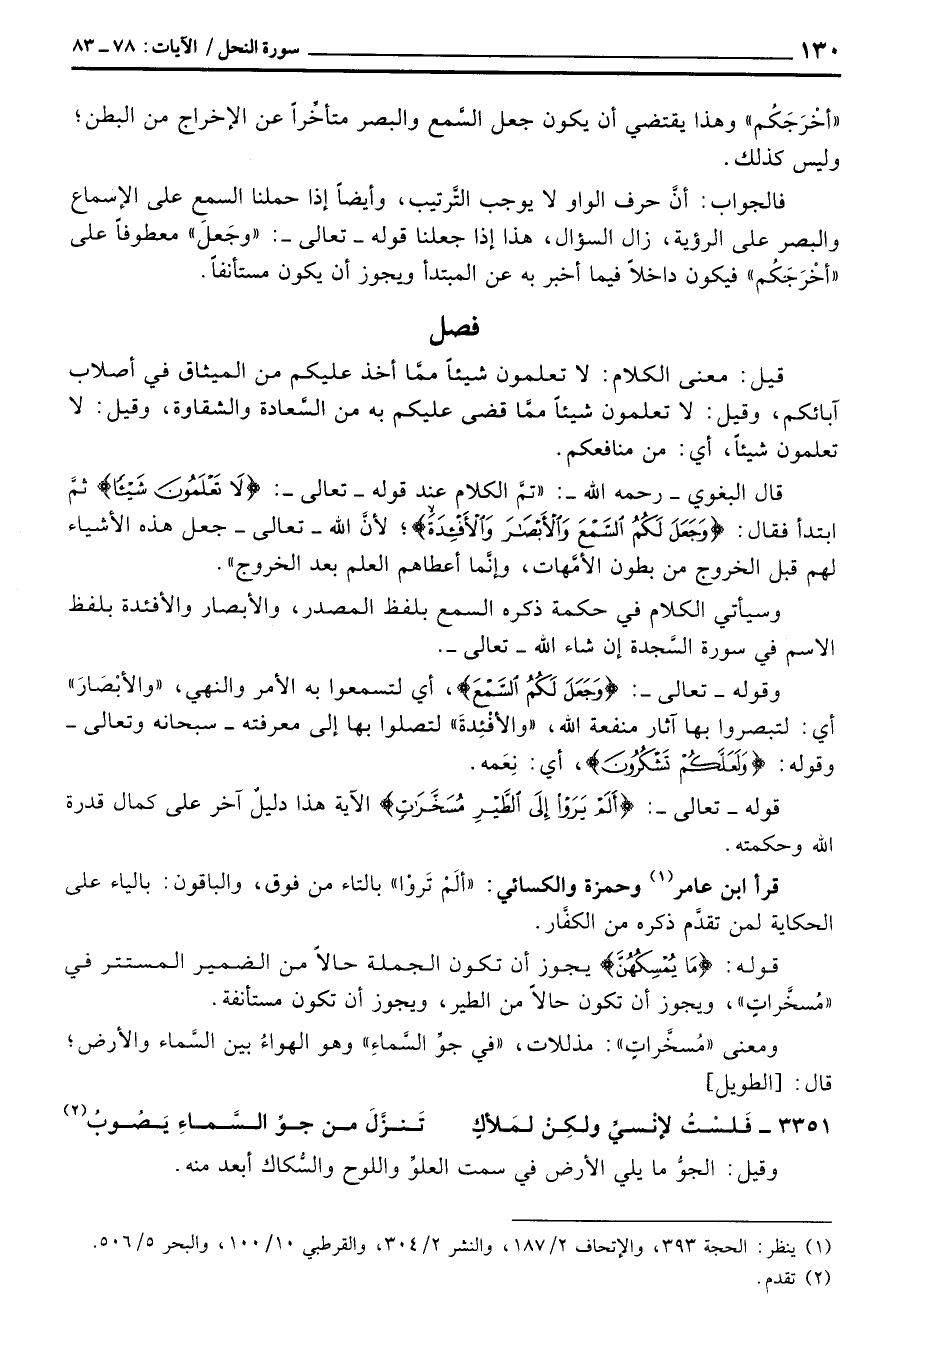 ١٣٠ سورة النحل / الآيات: ٧٨ ـ ٨٣
«أخْرَجَكُم» وهذا يقتضي أن يكون جعل السَّمع والبصر متأخِّراً عن الإخراج من البطن؛
وليس كذلك.
فالجواب: أنَّ حرف الواو لا يوجب التَّرتيب، وأيضاً إذا حملنا السمع على الإسماع
والبصر على الرؤية، زال السؤال، هذا إذا جعلنا قوله ـ تعالى ـ: «وجَعلَ» معطوفاً على
«أخْرَجَكُم» فيكون داخلاً فيما أخبر به عن المبتدأ ويجوز أن يكون مستأنفاً.
فصل
قيل: معنى الكلام: لا تعلمون شيئاً ممَّا أخذ عليكم من الميثاق في أصلاب
آبائكم، وقيل: لا تعلمون شيئاً ممَّا قضى عليكم به من السَّعادة والشقاوة، وقيل: لا
تعلمون شيئاً، أي: من منافعكم.
قال البغوي ـ رحمه الله ـ: «تمَّ الكلام عند قوله ـ تعالى ـ: ﴿لَا تَعْلَمُونَ شَيْئًا﴾ ثمَّ
ابتدأ فقال: ﴿وَجَعَلَ لَكُمُ ٱلسَّمْعَ وَٱلْأَبْصَٰرَ وَٱلْأَفْـِٔدَةَۙ﴾؛ لأنَّ الله ـ تعالى ـ جعل هذه الأشياء
لهم قبل الخروج من بطون الأمَّهات، وإنَّما أعطاهم العلم بعد الخروج».
وسيأتي الكلام في حكمة ذكره السمع بلفظ المصدر، والأبصار والأفئدة بلفظ
الاسم في سورة السَّجدة إن شاء الله ـ تعالى ـ.
وقوله ـ تعالى ـ: ﴿وَجَعَلَ لَكُمُ ٱلسَّمْعَ﴾، أي لتسمعوا به الأمر والنهي، «والأبْصَارَ»
أي: لتبصروا بها آثار منفعة الله، «والأفْئِدةَ» لتصلوا بها إلى معرفته ـ سبحانه وتعالى ـ
وقوله: ﴿وَلَعَلَّكُمْ تَشْكُرُونَ﴾، أي: نِعَمه.
قوله ـ تعالى ـ: ﴿أَلَمْ يَرَوْا۟ إِلَى ٱلطَّيْرِ مُسَخَّرَٰتٍ﴾ الآية هذا دليلٌ آخر على كمال قدرة
الله وحكمته.
قرأ ابن عامر(١) وحمزة والكسائي: «ألَمْ تَروْا» بالتاء من فوق، والباقون: بالياء على
الحكاية لمن تقدَّم ذكره من الكفَّار.
قوله: ﴿مَا يُمْسِكُهُنَّ﴾ يجوز أن تكون الجملة حالاً من الضمير المستتر في
«مُسخَّراتٍ»، ويجوز أن تكون حالاً من الطير، ويجوز أن تكون مستأنفة.
ومعنى «مُسخَّراتٍ»: مذللات، «في جوِّ السَّماءِ» وهو الهواءُ بين السَّماء والأرض؛
قال: [الطويل]
٣٣٥١ ـ فَلسْتُ لإنْسيٍّ ولكِنْ لمَلأكٍ تَنزَّلَ من جوِّ السَّماءِ يَصُوبُ(٢)
وقيل: الجوُّ ما يلي الأرض في سمت العلوِّ واللوح والسُّكاك أبعد منه.
(١) ينظر: الحجة ٣٩٣، والإتحاف ٢/ ١٨٧، والنشر ٢/ ٣٠٤، والقرطبي ١٠/ ١٠٠، والبحر ٥/ ٥٠٦.
(٢) تقدم.